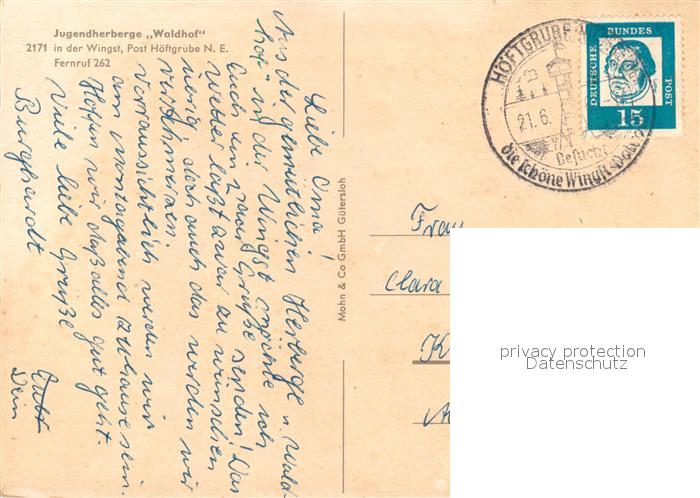 Jugendherberge „Waldhof"
2171 in der Wingst, Post Höftgrube N. E.
Fernruf 262
Liebe Oma!
Aus der gemütlichen Herberge „Wald-
hof" in der Wingst möchte ich
Euch ein paar Grüße senden! Das
Wetter läßt zwar zu wünschen
übrig, doch auch das werden wir
Voraussichtlich werden wir
am Montagabend zuhause sein.
Hoffen wir daß alles gut geht.
Viele liebe Grüße
Dein
Burghardt
Mohn & Co GmbH Gütersloh
HÖFTGRUBE
21.6.
Besucht
die schöne Wingst
DEUTSCHE
BUNDES
POST
15
Frau
Clara
K
privacy protection
Datenschutz